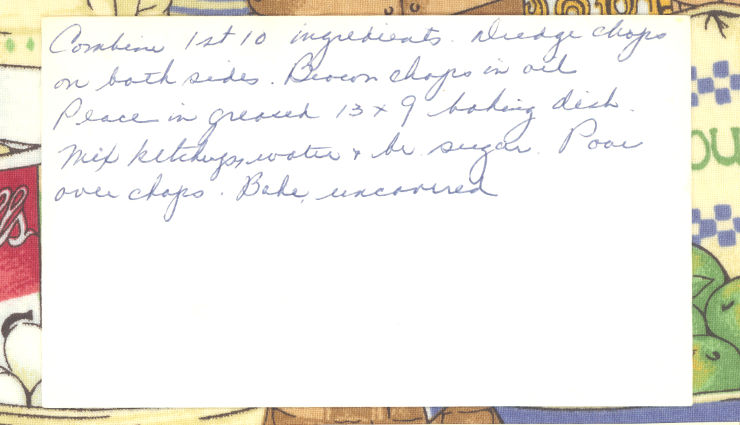 Combine 1st 10 ingredients. Dredge chops
on both sides. Brown chops in oil
Place in greased 13 x 9 baking dish.
Mix ketchup, water & br. sugar. Pour
over chops. Bake, uncovered
ou
ls